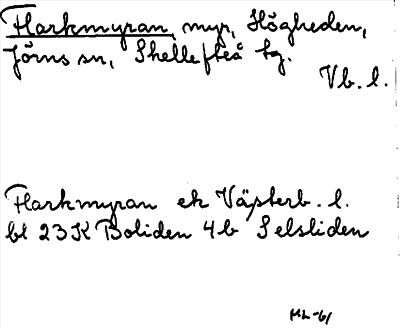 Flarkmyran, myr, Högheden,
Jörns sn, Skellefteå tg.
Vb. l.
Flarkmyran ek Västerb. l.
bl 23K Boliden 4b Selsliden
ML-61